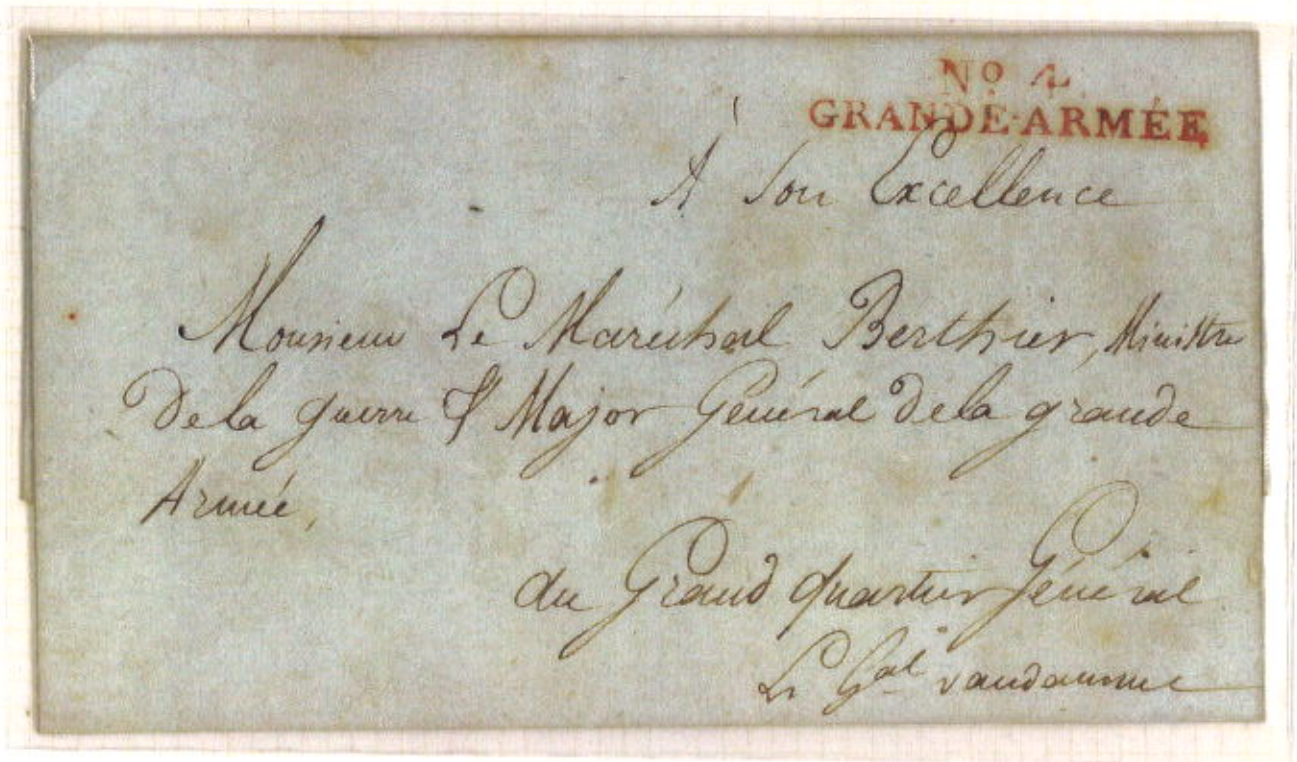 No 4.
GRANDE-ARMÉE
A Son Excellence
Monsieur Le Maréchal Berthier, Ministre
De la guerre & Major Général De la grande
Armée,
au Grand quartier Général
Le Gal vandamme